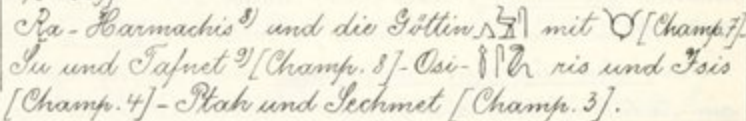 Ra-Harmachis 8) und die Göttin mit [Champ. 7]-
Su und Tafnet 9) [Champ. 8]-Osi- ris und Isis
[Champ. 4]-Ptah und Sechmet [Champ. 3].